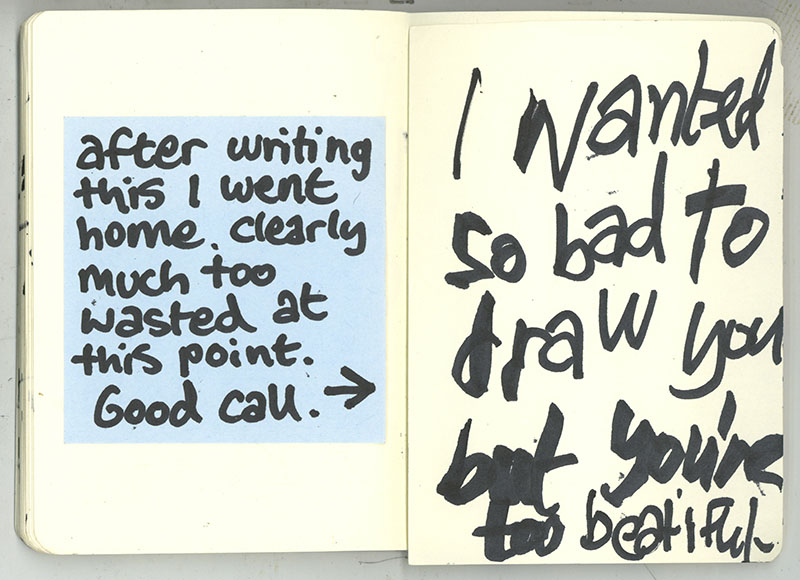 after writing
this I went
home. clearly
much too
wasted at
this point.
Good call. →
I wanted
so bad to
draw you
but you're
too beatiful.